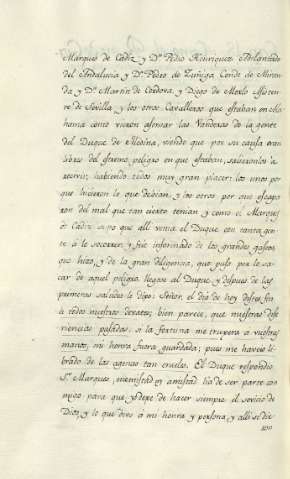 Marques de Cadiz y Dn Pedro Henriquez Adelantado
del Andalucia y Dn Pedro de Zuñiga Conde de Miran
da y Dn Martin de Cordova, y Diego de Merlo Assisten
te de Sevilla y los otros Cavalleros que estaban en Alha
hama como vieron asomar las Vanderas de la gente
del Duque de Medina, viendo que por su causa eran
libres del estremo peligro en que estaban, salieronlos à
recivir, habiendo todos muy gran placer: los unos por
que hicieron lo que debian, y los otros por que escapa
ron del mal que tan cierto tenian y como el Marques
de Cadiz supo que alli venia el Duque con tanta gen
te à le socorrer, y fue informado de los grandes gastos
que hizo, y de la gran diligencia, que puso por le sa
car de aquel peligro llegose al Duque, y despues de las
primeras saludes le dijo: Señor, el dia de hoy distes fin
à todos nuestros debates; bien parece, que nuestras dife
rencias pasadas, si la fortuna me truxera à vuestras
manos, mi honra fuera guardada; pues me haveis li
brado de las agenas tan crueles. El Duque respondio
Sr Marques, enemistad ni amistad ha de ser parte con
migo para que yo dexe de hacer siempre el servicio de
Dios, y lo que devo à mi honra y persona, y alli se die
ron